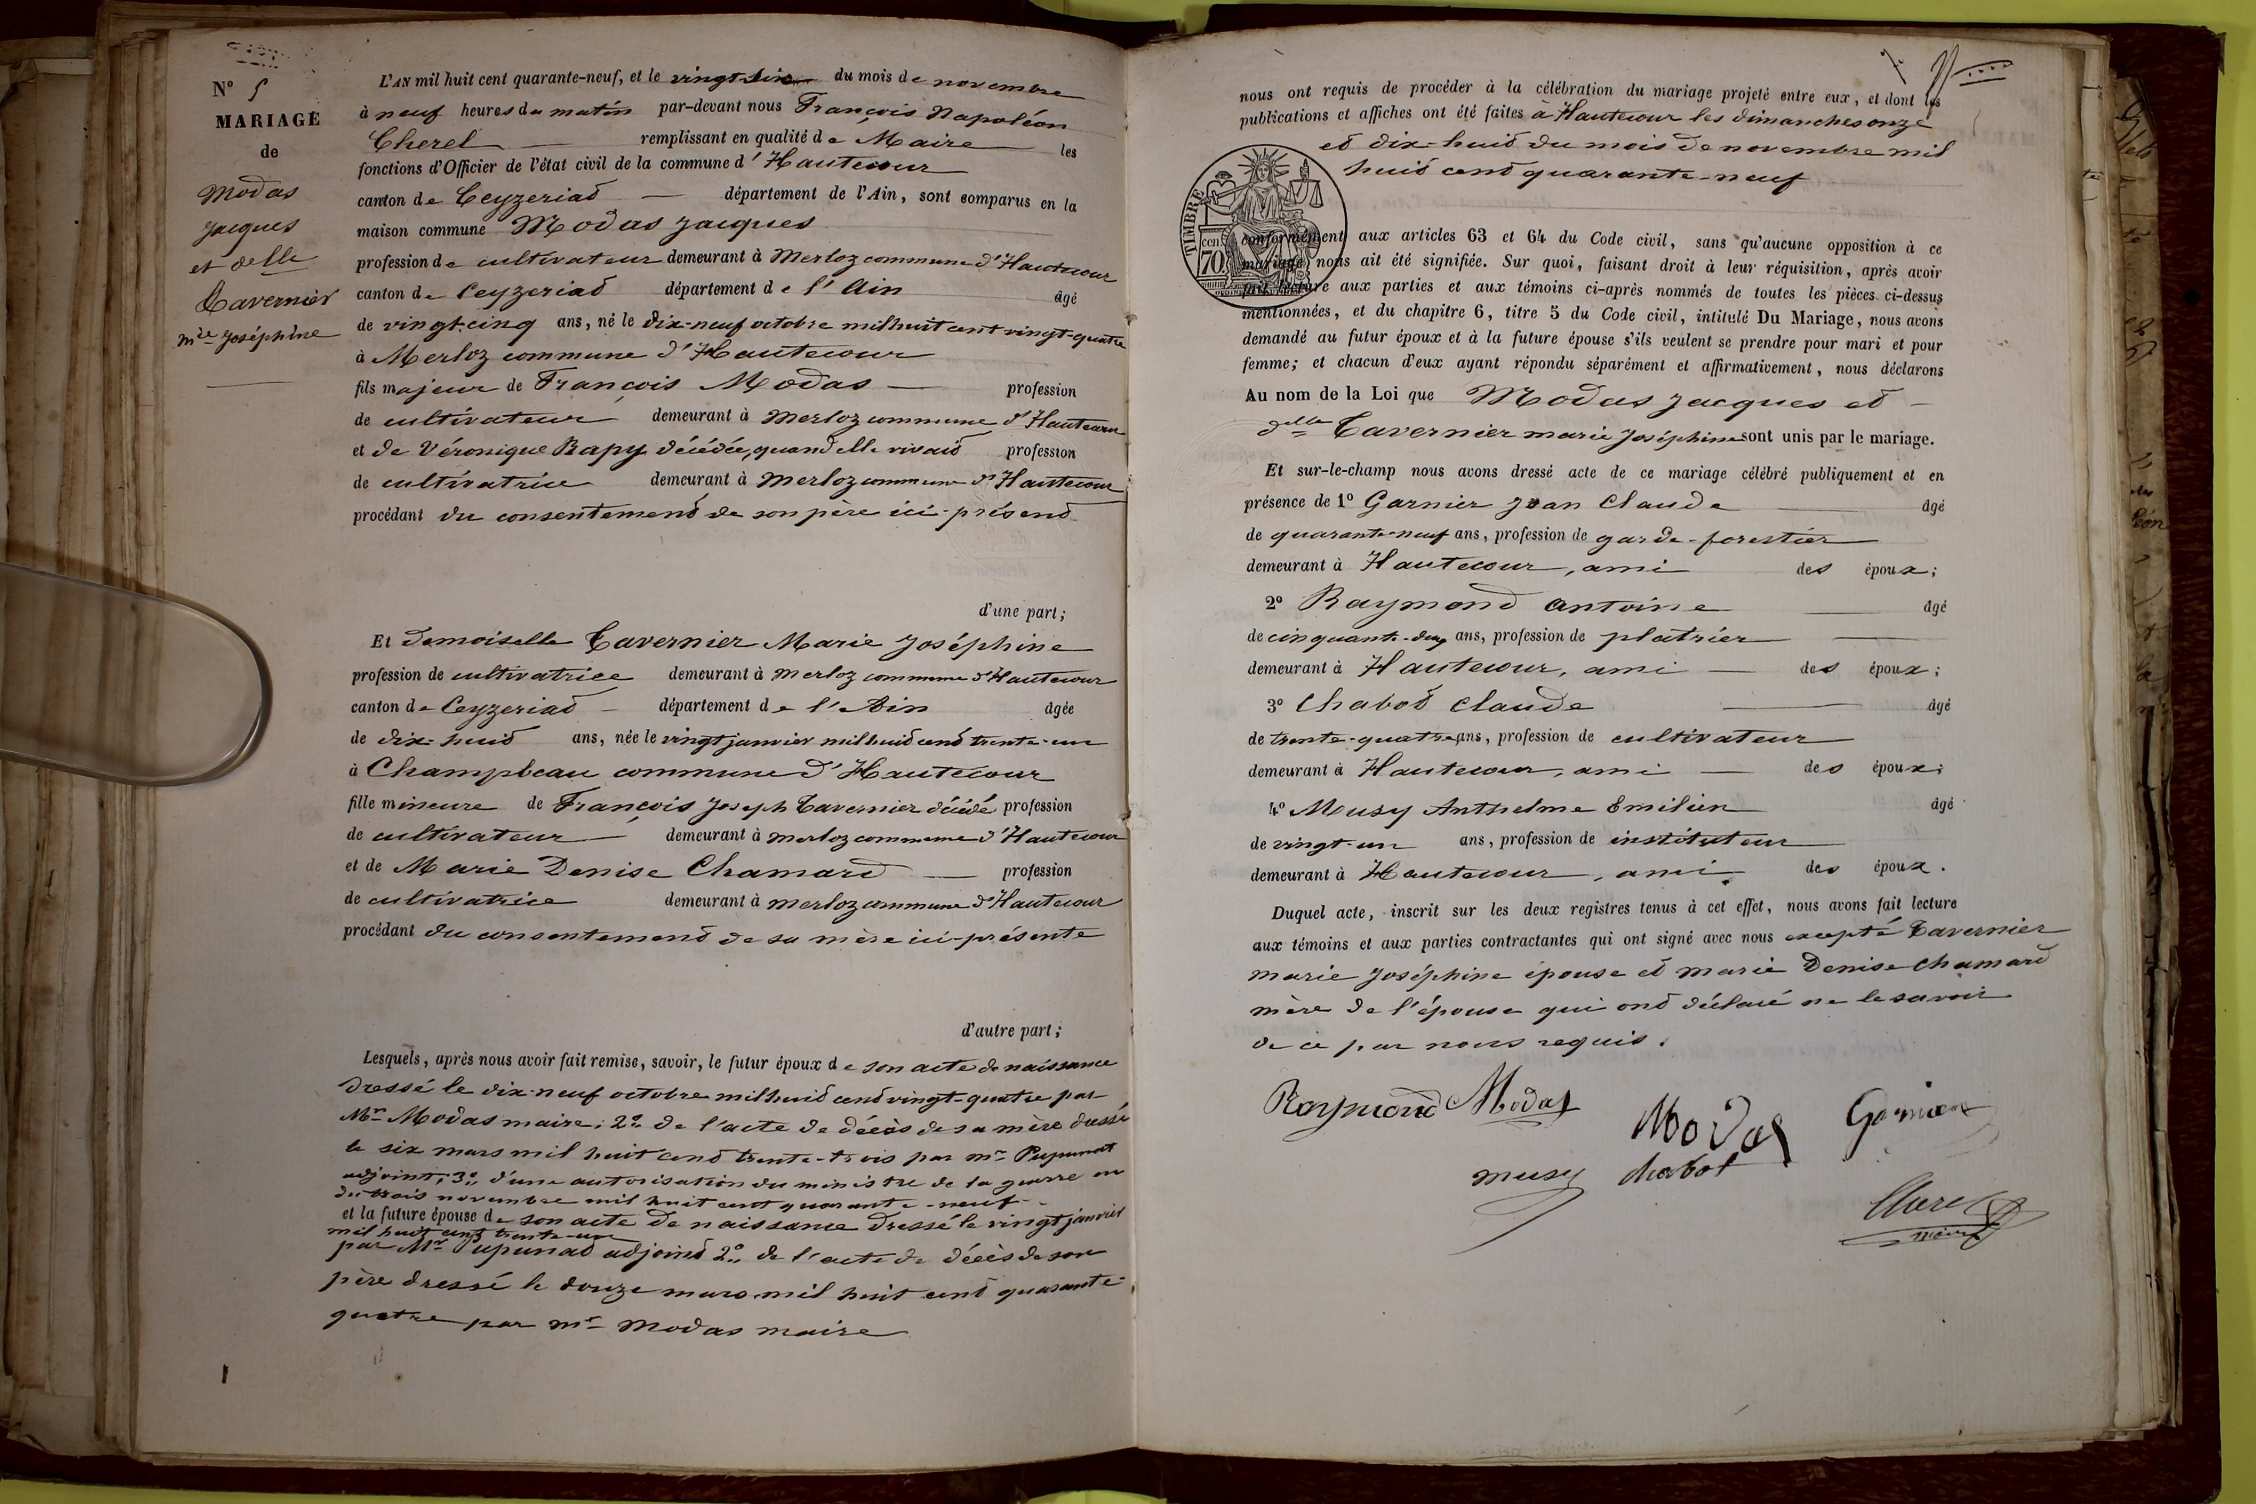 N° 5
MARIAGE
de
Modas
Jacques
et delle
Tavernier
mie Joséphine
L'AN mil huit cent quarante-neuf, et le vingt-six du mois de novembre
à neuf heures du matin par-devant nous François Napoléon
Cherel remplissant en qualité de Maire les
fonctions d'Officier de l'état civil de la commune d'Hautecour
canton de Ceyzeriat département de l'Ain, sont comparus en la
maison commune Modas Jacques
profession de cultivateur demeurant à Merloz commune d'Hautecour
canton de Ceyzeriat département de l'Ain âgé
de vingt-cinq ans, né le dix-neuf octobre mil huit cent vingt-quatre
à Merloz commune d'Hautecour
fils majeur de François Modas profession
de cultivateur demeurant à Merloz commune d'Hautecour
et de Véronique Rapy décédée, quand elle vivait profession
de cultivatrice demeurant à Merloz commune d'Hautecour
procédant du consentement de son père ici-présent
d'une part;
Et demoiselle Tavernier Marie Joséphine
profession de cultivatrice demeurant à Merloz commune d'Hautecour
canton de Ceyzeriat département de l'Ain âgée
de dix-huit ans, née le vingt janvier mil huit cent trente-un
à Champbeau commune d'Hautecour
fille mineure de François Joseph Tavernier décédé profession
de cultivateur demeurant à Merloz commune d'Hautecour
et de Marie Denise Chamard profession
de cultivatrice demeurant à Merloz commune d'Hautecour
procédant du consentement de sa mère ici-présente
d'autre part;
Lesquels, après nous avoir fait remise, savoir, le futur époux de son acte de naissance
dressé le dix-neuf octobre mil huit cent vingt-quatre par
Mr Modas maire; 2° de l'acte de décès de sa mère dressé
le six mars mil huit cent trente-trois par mr Pupunat
adjoint; 3° d'une autorisation du ministre de la guerre en
du trois novembre mil huit cent quarante-neuf
et la future épouse de son acte de naissance dressé le vingt janvier
mil huit cent trente-un
par Mr Pupunat adjoint 2° de l'acte de décès de son
père dressé le douze mars mil huit cent quarante-
quatre par mr Modas maire
nous ont requis de procéder à la célébration du mariage projeté entre eux, et dont les
publications et affiches ont été faites à Hautecour les dimanches onze
et dix-huit du mois de novembre mil
huit cent quarante-neuf
TIMBRE
70 cen
conformément aux articles 63 et 64 du Code civil, sans qu'aucune opposition à ce
mariage nous ait été signifiée. Sur quoi, faisant droit à leur réquisition, après avoir
fait lecture aux parties et aux témoins ci-après nommés de toutes les pièces ci-dessus
mentionnées, et du chapitre 6, titre 5 du Code civil, intitulé Du Mariage, nous avons
demandé au futur époux et à la future épouse s'ils veulent se prendre pour mari et pour
femme; et chacun d'eux ayant répondu séparément et affirmativement, nous déclarons
Au nom de la Loi que Modas Jacques et
delle Tavernier marie Joséphine sont unis par le mariage.
Et sur-le-champ nous avons dressé acte de ce mariage célébré publiquement et en
présence de 1° Garnier Jean Claude âgé
de quarante-neuf ans, profession de garde-forestier
demeurant à Hautecour, ami des époux;
2° Raymond Antoine âgé
de cinquante-deux ans, profession de platrier
demeurant à Hautecour, ami des époux;
3° Chabot Claude âgé
de trente-quatre ans, profession de cultivateur
demeurant à Hautecour, ami des époux;
4° Musy Anthelme Emilien âgé
de vingt-un ans, profession de instituteur
demeurant à Hautecour, ami des époux.
Duquel acte, inscrit sur les deux registres tenus à cet effet, nous avons fait lecture
aux témoins et aux parties contractantes qui ont signé avec nous excepté Tavernier
marie Joséphine épouse et marie Denise Chamard
mère de l'épouse qui ont déclaré ne le savoir
de ce par nous requis.
Raymond Modas Modas Garnier
Musy Chabot
Cherel
maire